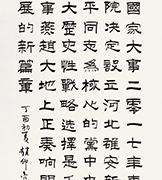 國家大事二零一七年
院决定設立河北雄安新
平同志爲核心的黨中央
大歷史性戰略選擇是
事燕趙大地上正奏響
展的新篇章
丁酉初夏